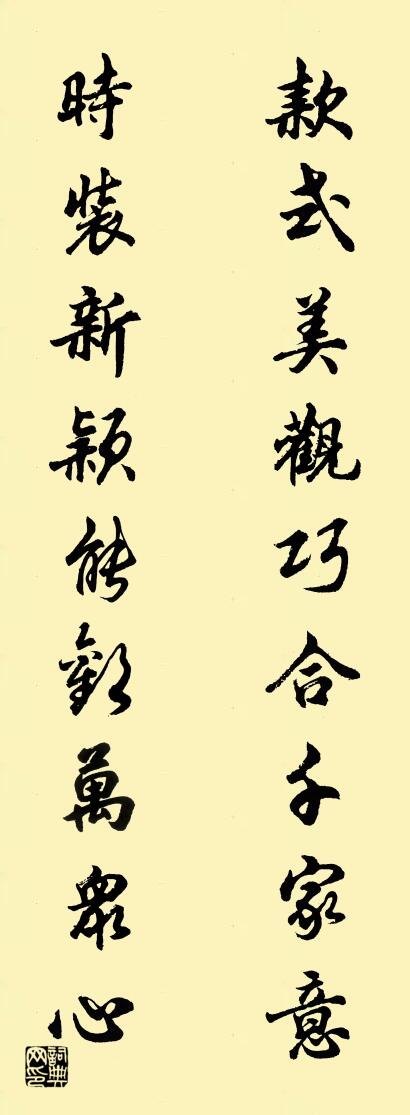 款式美觀巧合千家意
時裝新穎能歡萬眾心
詞典网印